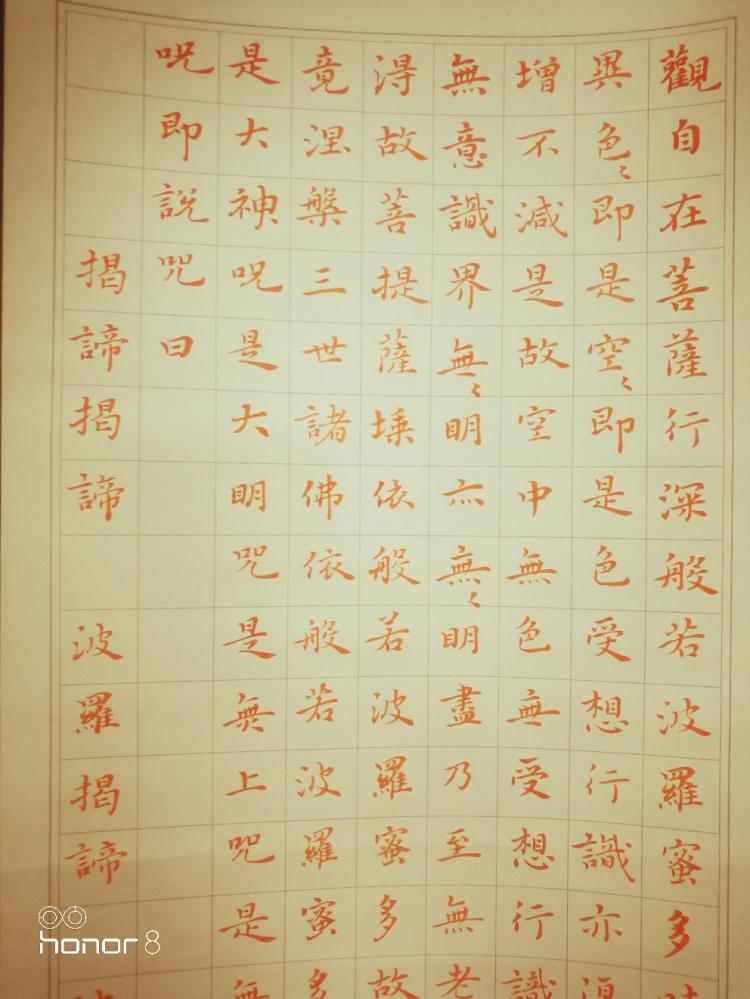 觀自在菩薩行深般若波羅蜜多時
異色〻即是空〻即是色受想行識亦
增不減是故空中無色無受想行識
無意識界無〻明亦無〻明盡乃至無老
得故菩提薩埵依般若波羅蜜多故
竟涅槃三世諸佛依般若波羅蜜多
是大神呪是大明咒是無上咒是無
呪即說咒曰
揭諦揭諦 波羅揭諦
honor 8